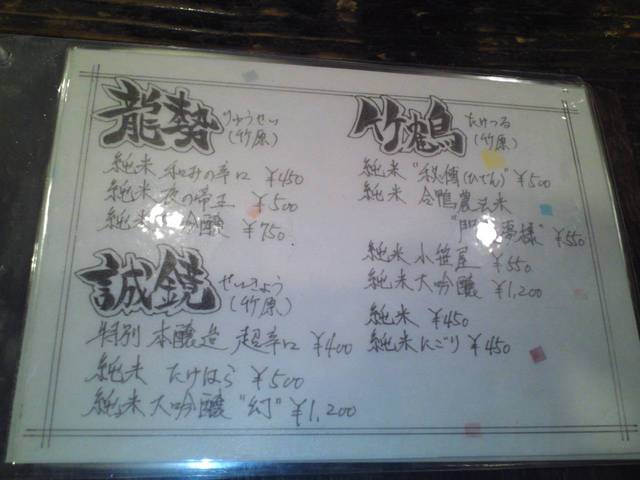 龍勢 りゅうせい
(竹原)
純米 和みの辛口 ¥450
純米 夜の帝王 ¥500
純米 吟醸 ¥750.
誠鏡 せいきょう
(竹原)
特別 本醸造 超辛口 ¥400
純米 たけはら ¥500
純米大吟醸 "幻" ¥1,200
竹鶴 たけつる
(竹原)
純米 "秘傳(ひでん)" ¥500
純米 合鴨農法米
夢様" ¥550
純米 小笹屋 ¥550
純米大吟醸 ¥1,200
純米 ¥450
純米にごり ¥450